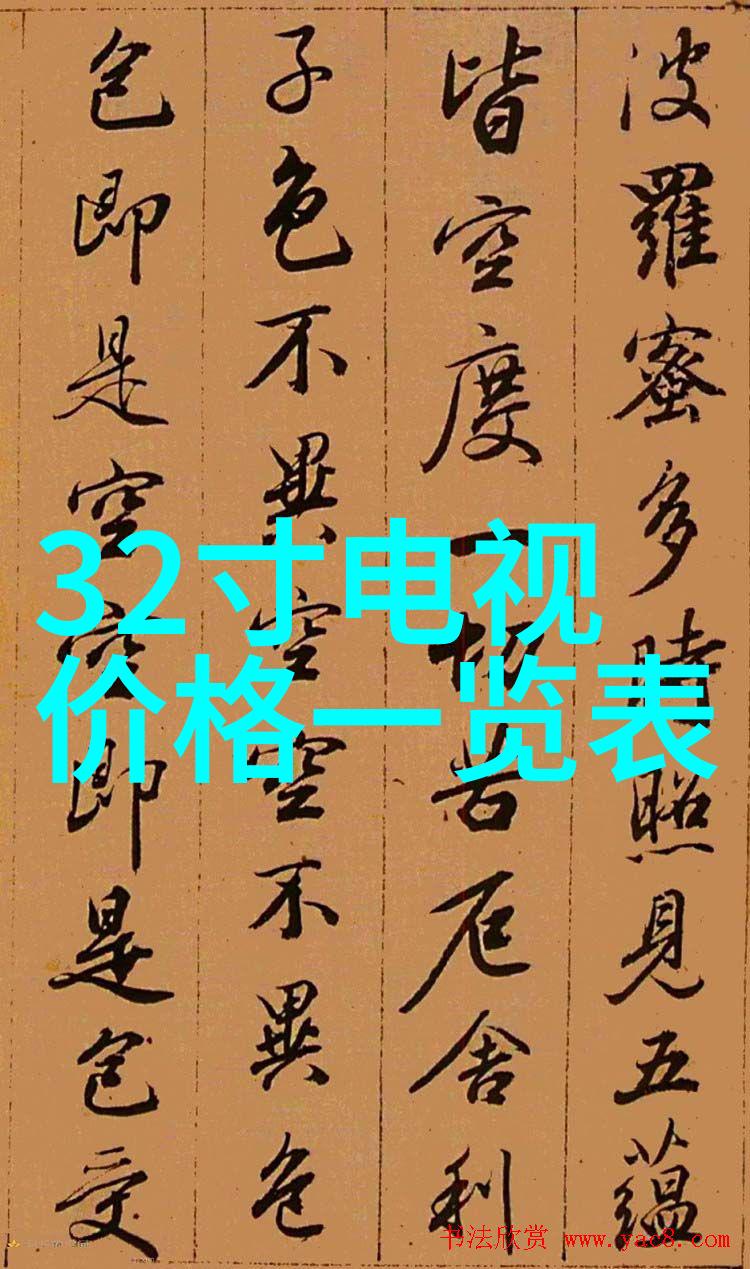 波羅蜜多時照見五蘊
皆空度一切苦厄舍利
子色不異空空不異色
色即是空空即是色受
32寸电视
价格一览表
书法欣赏 www.yac8.com